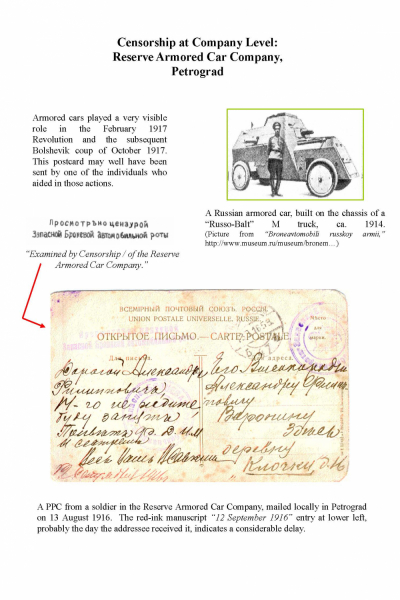 Censorship at Company Level:
Reserve Armored Car Company,
Petrograd
Armored cars played a very visible
role in the February 1917
Revolution and the subsequent
Bolshevik coup of October 1917.
This postcard may well have been
sent by one of the individuals who
aided in those actions.
Просмотрѣно цензурой
Запасной Броневой Автомобильной роты
“Examined by Censorship / of the Reserve
Armored Car Company.”
A Russian armored car, built on the chassis of a
“Russo-Balt” M truck, ca. 1914.
(Picture from “Broneavtomobili russkoy armii,”
http://www.museum.ru/museum/bronem…)
ВСЕМІРНЫЙ ПОЧТОВЫЙ СОЮЗЪ. РОССІЯ.
UNION POSTALE UNIVERSELLE. RUSSIE.
ОТКРЫТОЕ ПИСЬМО.—CARTE POSTALE.
Мѣсто
для
марки.
Для письма.
адреса.
Александру
Филипповичъ
Его
Александру
Воронину
деревню
A PPC from a soldier in the Reserve Armored Car Company, mailed locally in Petrograd
on 13 August 1916. The red-ink manuscript “12 September 1916” entry at lower left,
probably the day the addressee received it, indicates a considerable delay.